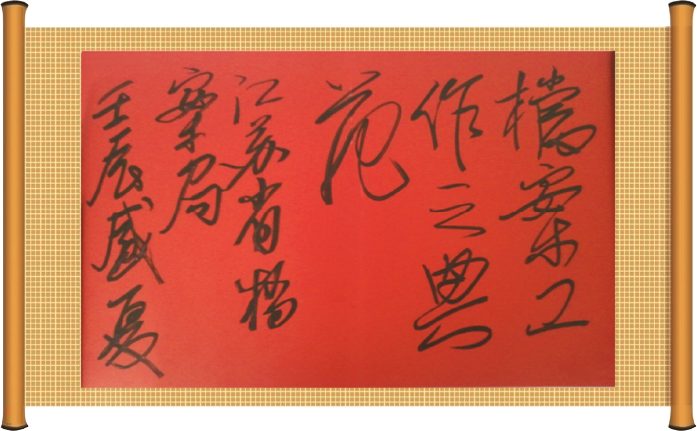 檔案工
作之典
范
江苏省档
案局
壬辰盛夏